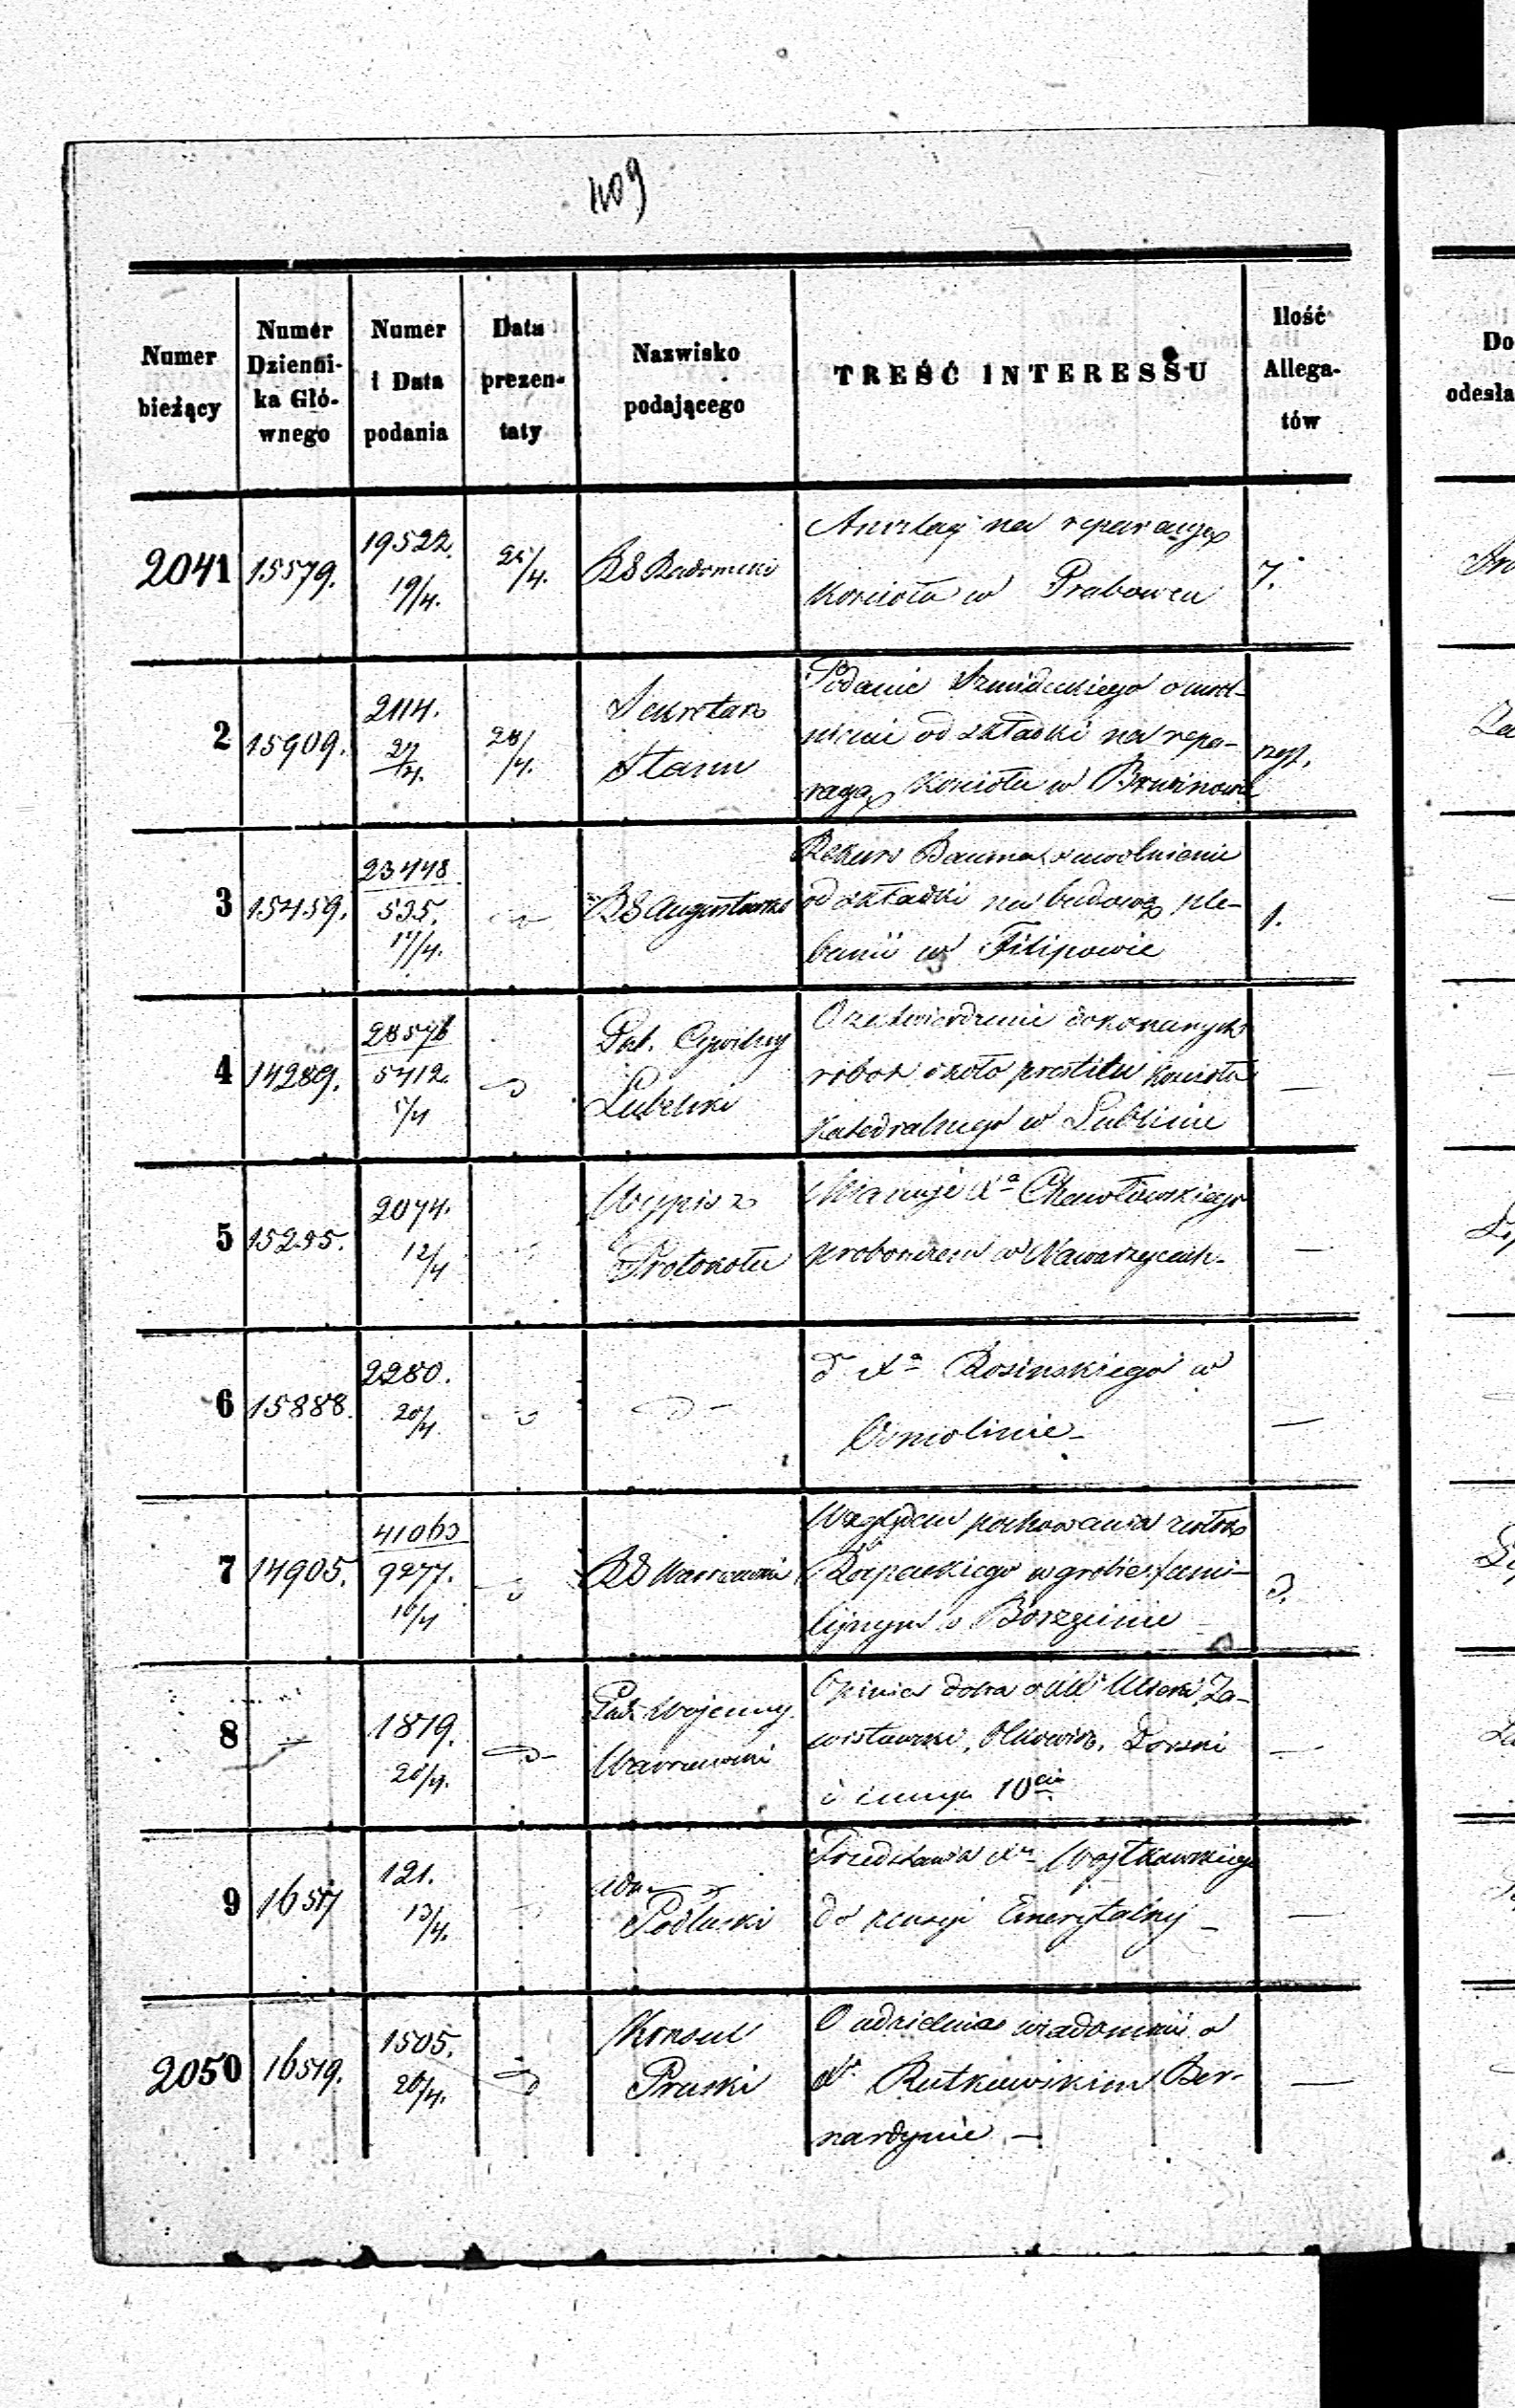 409
Numer bieżący
Numer Dzienni-ka Głó-wnego
Numer i Data podania
Data prezen-taty
Nazwisko podającego
TREŚĆ INTERESSU
Ilość Allega-tów
Do
odesła
2041 15579. 19522. 19/4. 25/4. RG Radomski
Anszlag na reparacyę
Kościoła w Prabowcu
7.
2 15909. 2114. 27/4. 28/4.
Sekretarz
Stanu
Podanie o uwol-
nienie od składki na repa-
racyą Kościoła w
3 15459. 23448 535. 17/4. RG Augustowski
Rekurs Bauma o uwolnienie
od składki na budowę ple-
banii w Filipowie
1.
4 14289. 28576 5412. 17/4
Gub. Cywilny
Lubelski
O zatwierdzenie dokonanych
robót około Kościoła
Katedralnego w Lublinie
—
5 15295. 2074. 12/4
Wypis z
Protokołu
Mianuje Xa Chawłowskiego
Proboszczem w Nawarzycach.
—
6 15888. 2280. 20/4.
dº Xa Rosinskiego w
Osmolinie
—
7 14905. 41060 9277. 16/4 RG Warszawski
Względem pochowania zwłok
Rzępackiego w grobie fami-
lijnym w Borzęcinie
3.
8 — 1819. 28/4.
Gub. Wojenny
Warszawski
Opinia dobra o Za-
wistowski, Olkowicz, Dorski
i innych 10ciu
—
9 16517 121. 13/4.
Adm
Podlaski
Przedstawia Xa Wojtkowskiego
do pensyi Emerytalnej
—
2050 16519. 1505. 26/4.
Konsul
Pruski
O udzielenie wiadomości o
Xu Rutkowskim Ber-
nardynie —
—